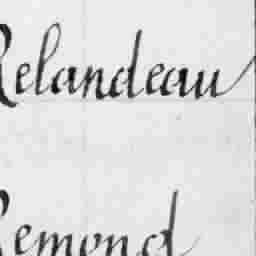 Relandeau
Remond